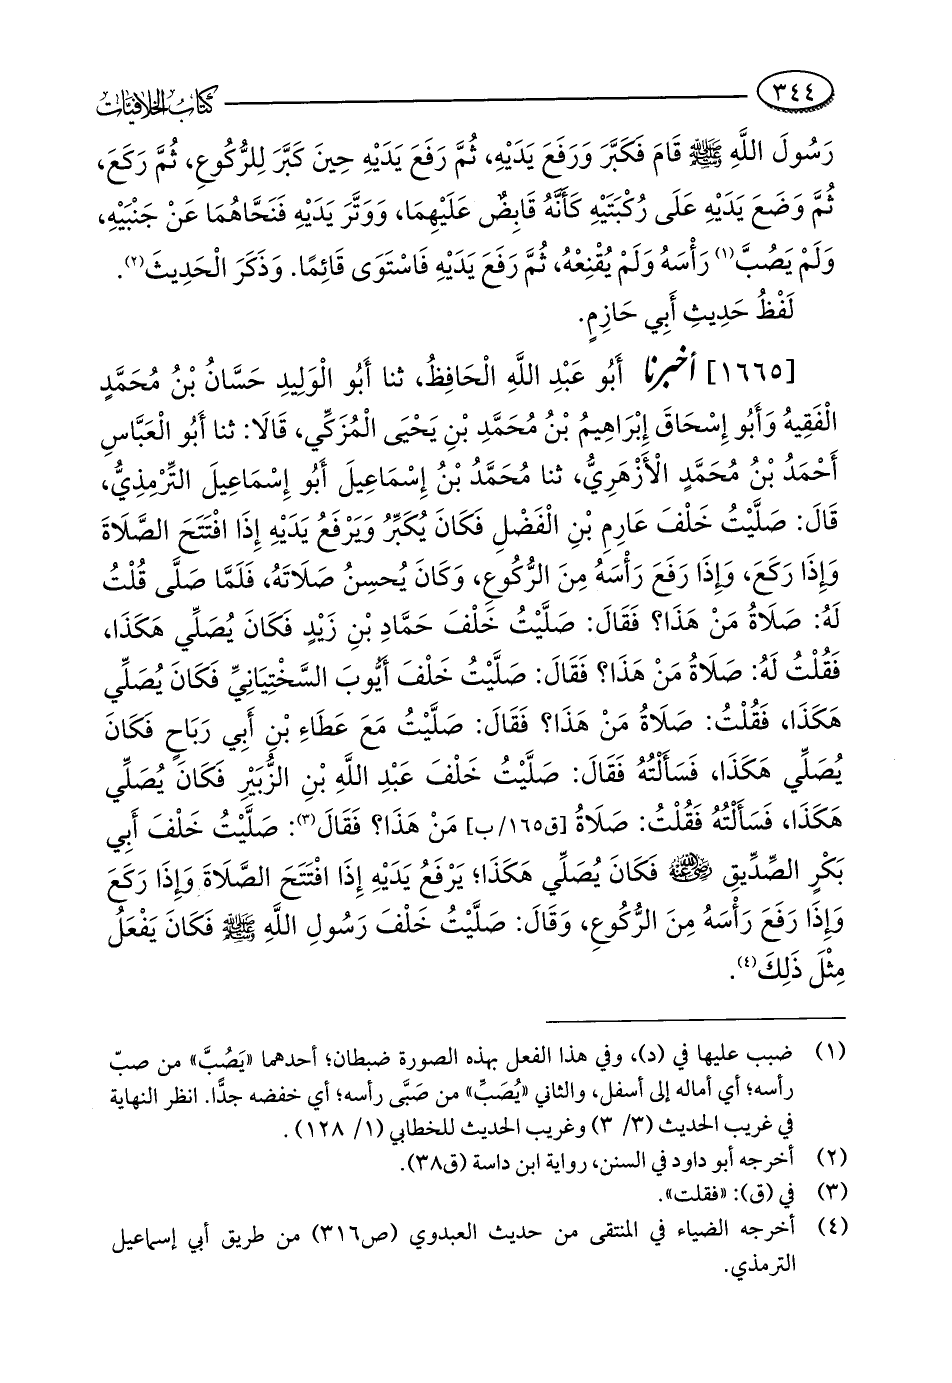 ٣٤٤
كتاب الخلافيات
رَسُولَ اللَّهِ ﷺ قَامَ فَكَبَّرَ وَرَفَعَ يَدَيْهِ، ثُمَّ رَفَعَ يَدَيْهِ حِينَ كَبَّرَ لِلرُّكُوعِ، ثُمَّ رَكَعَ،
ثُمَّ وَضَعَ يَدَيْهِ عَلَى رُكْبَتَيْهِ كَأَنَّهُ قَابِضٌ عَلَيْهِمَا، وَوَتَّرَ يَدَيْهِ فَنَحَّاهُمَا عَنْ جَنْبَيْهِ،
وَلَمْ يَصُبَّ(١) رَأْسَهُ وَلَمْ يُقْنِعْهُ، ثُمَّ رَفَعَ يَدَيْهِ فَاسْتَوَى قَائِمًا. وَذَكَرَ الْحَدِيثَ(٢).
لَفْظُ حَدِيثِ أَبِي حَازِمٍ.
[١٦٦٥] أخبرنا أَبُو عَبْدِ اللَّهِ الْحَافِظُ، ثنا أَبُو الْوَلِيدِ حَسَّانُ بْنُ مُحَمَّدٍ
الْفَقِيهُ وَأَبُو إِسْحَاقَ إِبْرَاهِيمُ بْنُ مُحَمَّدِ بْنِ يَحْيَى الْمُزَكِّي، قَالَا: ثنا أَبُو الْعَبَّاسِ
أَحْمَدُ بْنُ مُحَمَّدٍ الْأَزْهَرِيُّ، ثنا مُحَمَّدُ بْنُ إِسْمَاعِيلَ أَبُو إِسْمَاعِيلَ التِّرْمِذِيُّ،
قَالَ: صَلَّيْتُ خَلْفَ عَارِمِ بْنِ الْفَضْلِ فَكَانَ يُكَبِّرُ وَيَرْفَعُ يَدَيْهِ إِذَا افْتَتَحَ الصَّلَاةَ
وَإِذَا رَكَعَ، وَإِذَا رَفَعَ رَأْسَهُ مِنَ الرُّكُوعِ، وَكَانَ يُحسِنُ صَلَاتَهُ، فَلَمَّا صَلَّى قُلْتُ
لَهُ: صَلَاةُ مَنْ هَذَا؟ فَقَالَ: صَلَّيْتُ خَلْفَ حَمَّادِ بْنِ زَيْدٍ فَكَانَ يُصَلِّي هَكَذَا،
فَقُلْتُ لَهُ: صَلَاةُ مَنْ هَذَا؟ فَقَالَ: صَلَّيْتُ خَلْفَ أَيُّوبَ السَّخْتِيَانِيِّ فَكَانَ يُصَلِّي
هَكَذَا، فَقُلْتُ: صَلَاةُ مَنْ هَذَا؟ فَقَالَ: صَلَّيْتُ مَعَ عَطَاءِ بْنِ أَبِي رَبَاحٍ فَكَانَ
يُصَلِّي هَكَذَا، فَسَأَلْتُهُ فَقَالَ: صَلَّيْتُ خَلْفَ عَبْدِ اللَّهِ بْنِ الزُّبَيْرِ فَكَانَ يُصَلِّي
هَكَذَا، فَسَأَلْتُهُ فَقُلْتُ: صَلَاةُ [ق١٦٥/ب] مَنْ هَذَا؟ فَقَالَ(٣): صَلَّيْتُ خَلْفَ أَبِي
بَكْرٍ الصِّدِّيقِ رضي الله عنه فَكَانَ يُصَلِّي هَكَذَا؛ يَرْفَعُ يَدَيْهِ إِذَا افْتَتَحَ الصَّلَاةَ وَإِذَا رَكَعَ
وَإِذَا رَفَعَ رَأْسَهُ مِنَ الرُّكُوعِ، وَقَالَ: صَلَّيْتُ خَلْفَ رَسُولِ اللَّهِ ﷺ فَكَانَ يَفْعَلُ
مِثْلَ ذَلِكَ(٤).
(١) ضبب عليها في (د)، وفي هذا الفعل بهذه الصورة ضبطان؛ أحدهما «يَصُبَّ» من صبّ
رأسه؛ أي أماله إلى أسفل، والثاني «يُصَبِّ» من صَبَّى رأسه؛ أي خفضه جدًّا. انظر النهاية
في غريب الحديث (٣/ ٣) وغريب الحديث للخطابي (١/ ١٢٨).
(٢) أخرجه أبو داود في السنن، رواية ابن داسة (ق٣٨).
(٣) في (ق): «فقلت».
(٤) أخرجه الضياء في المنتقى من حديث العبدوي (ص٣١٦) من طريق أبي إسماعيل
الترمذي.